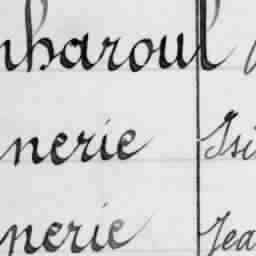 nharoul
nerie Isi
nerie Jea